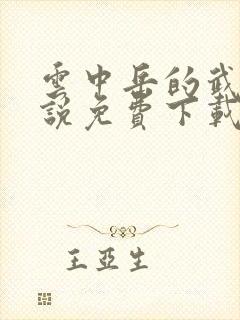 雲中岳的武
說免費下載
王亞生